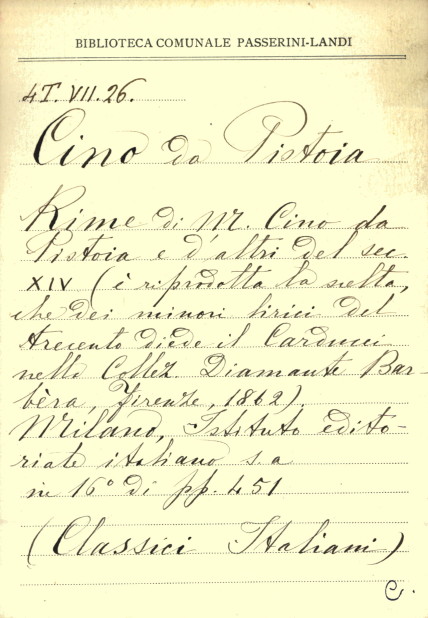 BIBLIOTECA COMUNALE PASSERINI-LANDI
4T. VII. 26.
Cino da Pistoia
Rime di M. Cino da
Pistoia e d'altri del sec.
XIV (è riprodotta la scelta,
che dei minori lirici del
trecento diede il Carducci
nella Collez Diamante Bar-
bèra, Firenze, 1862).
Milano, Istituto edito-
riale italiano s. a
in 16° di pp. 451
(Classici Italiani)
C.